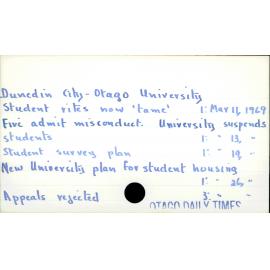 Dunedin City - Otago University
Student rites now 'tame' 1: Mar 11, 1969
Five admit misconduct. University suspends
students 1: " 13, "
Student survey plan 1: " 19, "
New University plan for student housing
1: " 26, "
Appeals rejected 3: " "
OTAGO DAILY TIMES